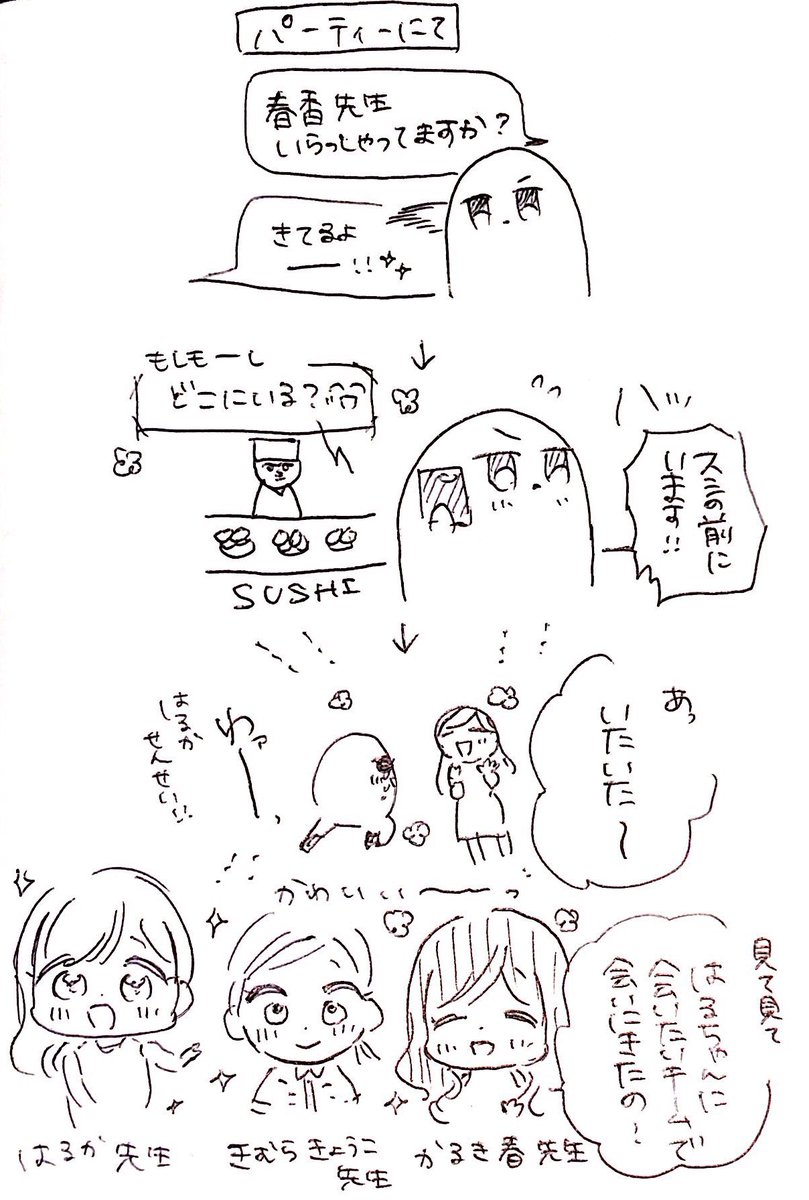 パーティーにて
春香先生
いらっしゃってますか?
きてるよ
ー!!
もしもーし
どこにいる?
スシの前に
います!!
SUSHI
あっ
いたいた〜
わァーっ
はるか
せんせい!!
かわいいーっ
見て見て
はるちゃんに
会いたいチームで
会いにきたの!
はるか先生
きむらきょうこ
先生
かるき春先生